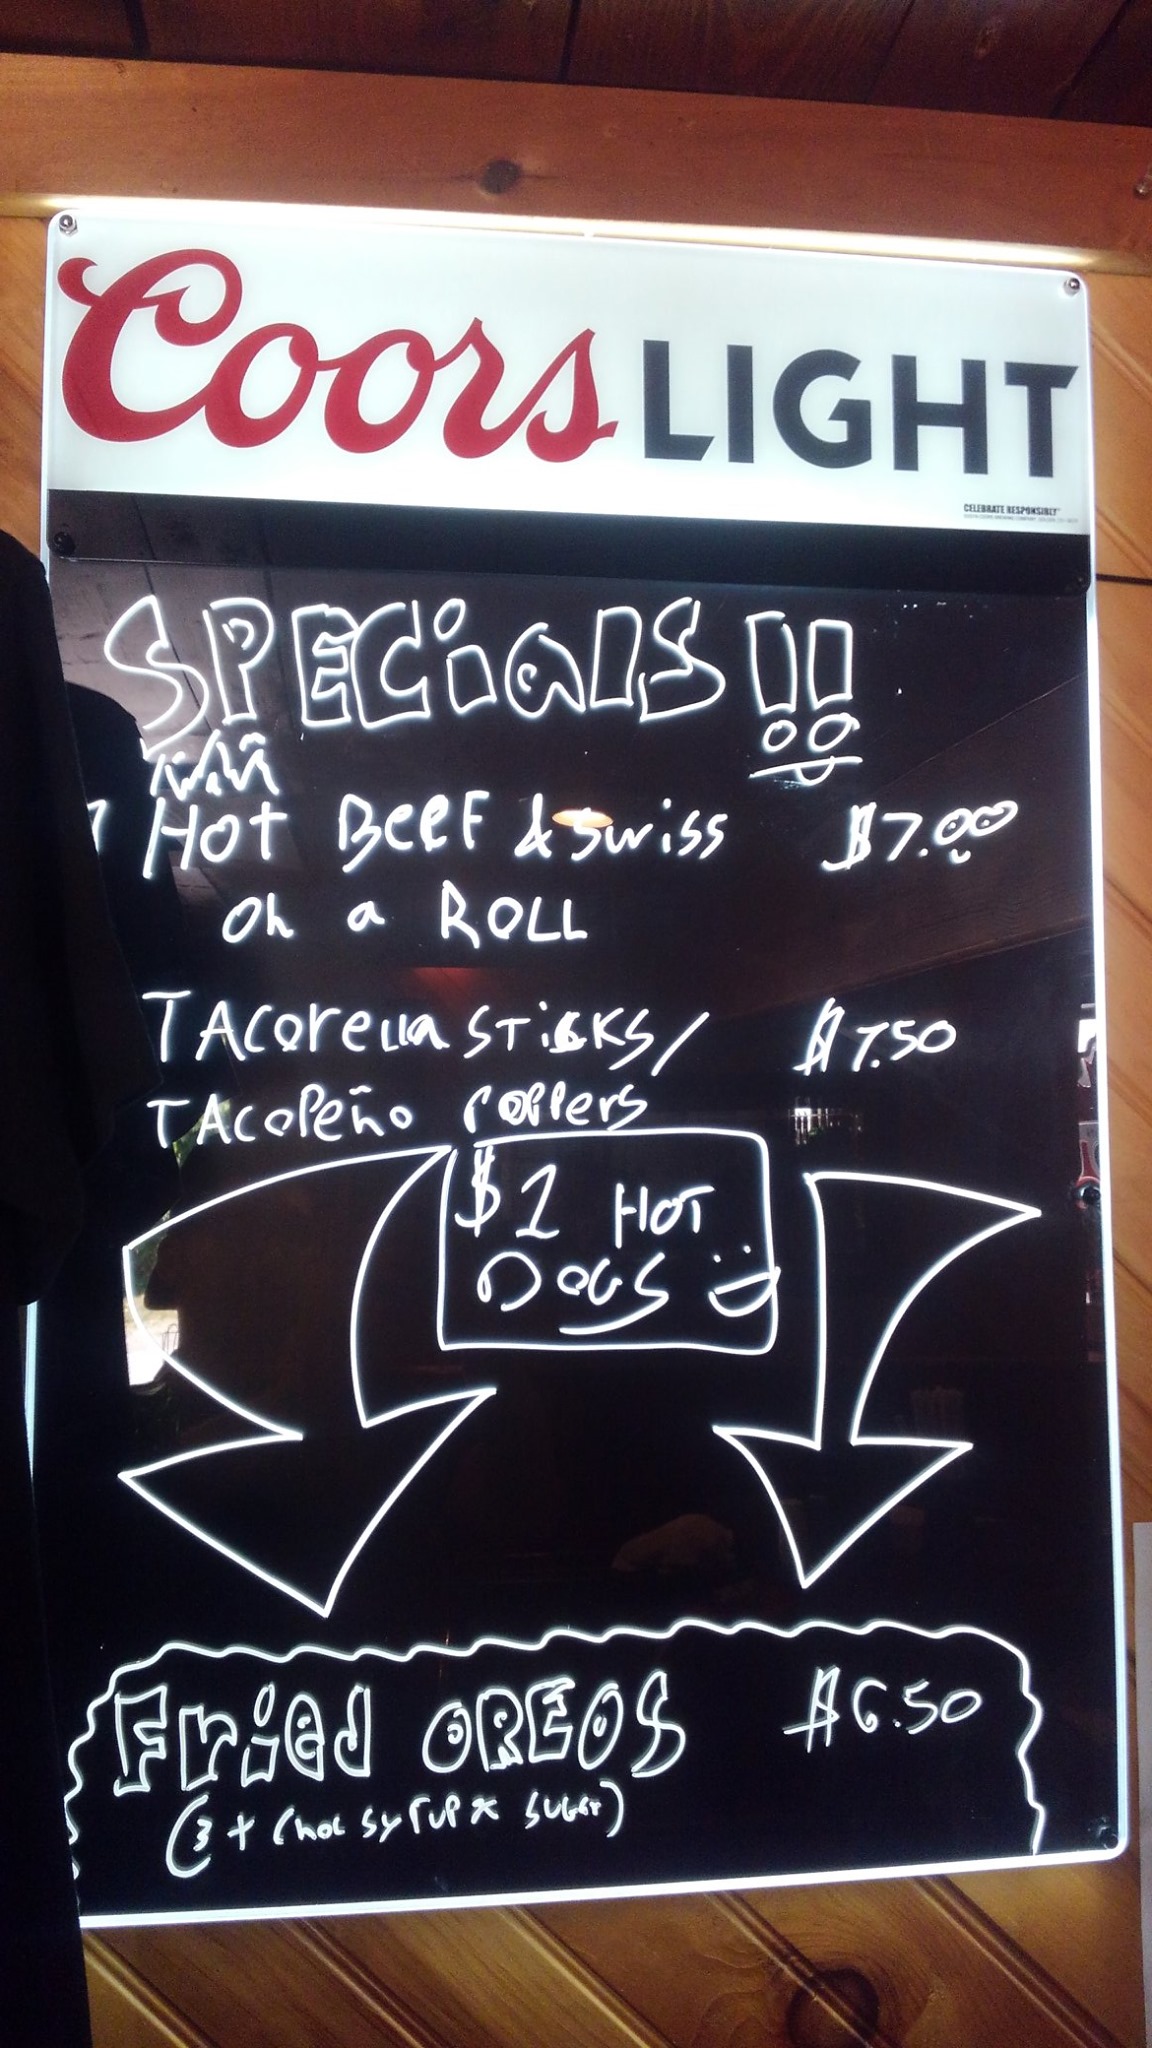 Coors LIGHT
CELEBRATE RESPONSIBLY
SPECiAlS!!
HOT BEEF & Swiss $7.00
on a ROLL
TACOrella STiCKS/ $7.50
TACOPeño POPPers
$1 HOT
DOGS
Fried OREOS $6.50
(3 + Choc syrup